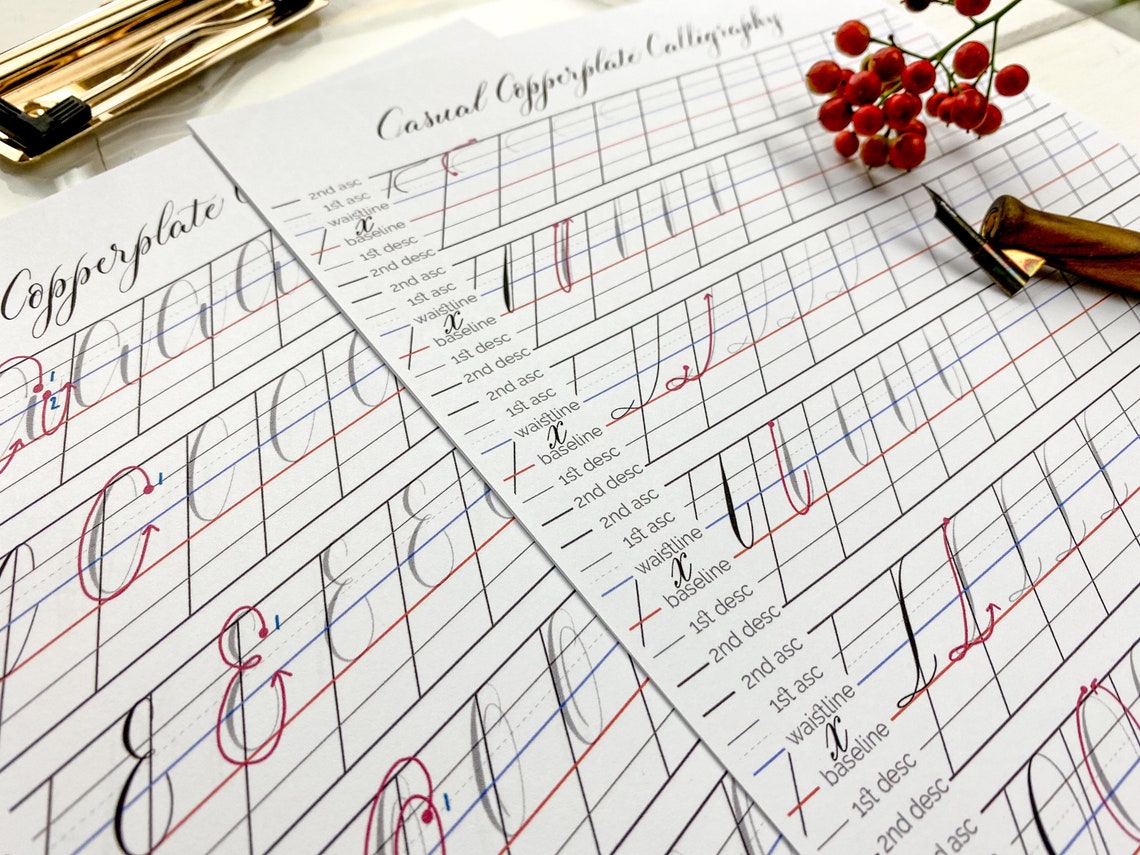 Copperplate
1
2
a a a a
C 1 C C C
E E 1 E E
1
Casual Copperplate Calligraphy
2nd asc
1st asc
waistline
x
baseline
1st desc
2nd desc
2nd asc
1st asc
waistline
x
baseline
1st desc
2nd desc
2nd asc
1st asc
waistline
x
baseline
1st desc
2nd desc
2nd asc
1st asc
waistline
x
baseline
1st desc
2nd desc
2nd asc
1st asc
waistline
x
baseline
1st desc
2nd desc
asc